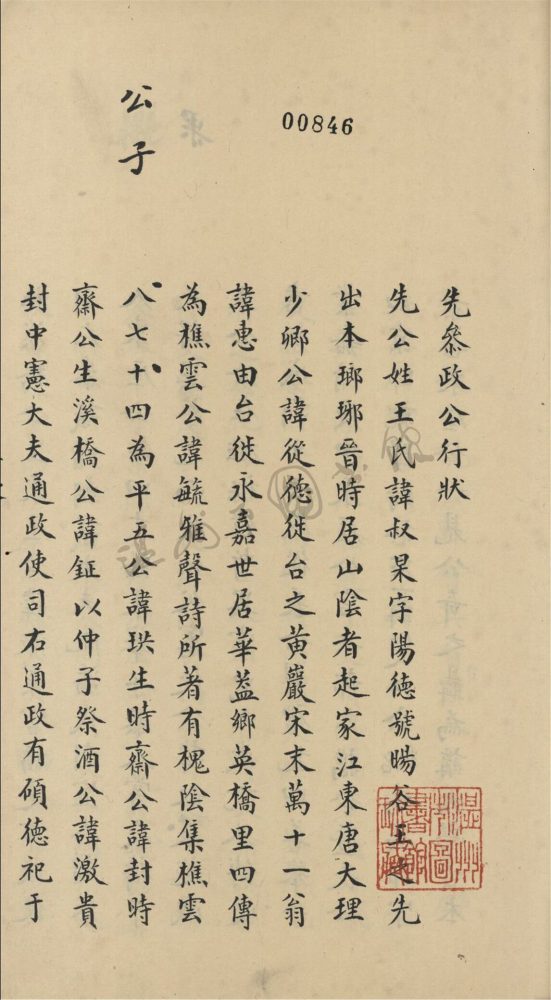 00846
先參政公行狀
先公姓王氏諱叔杲字陽德號暘谷王之先
出本瑯琊晉時居山陰者起家江東唐大理
少卿公諱從德徙台之黃巖宋末萬十一翁
諱惠由台徙永嘉世居華葢鄉英橋里四傳
為樵雲公諱毓雅聲詩所著有槐陰集樵雲
八七十四為平五公諱珙生時齋公諱封時
齋公生溪橋公諱鉦以仲子祭酒公諱激貴
封中憲大夫通政使司右通政有碩德祀于
公子
溫州
圖